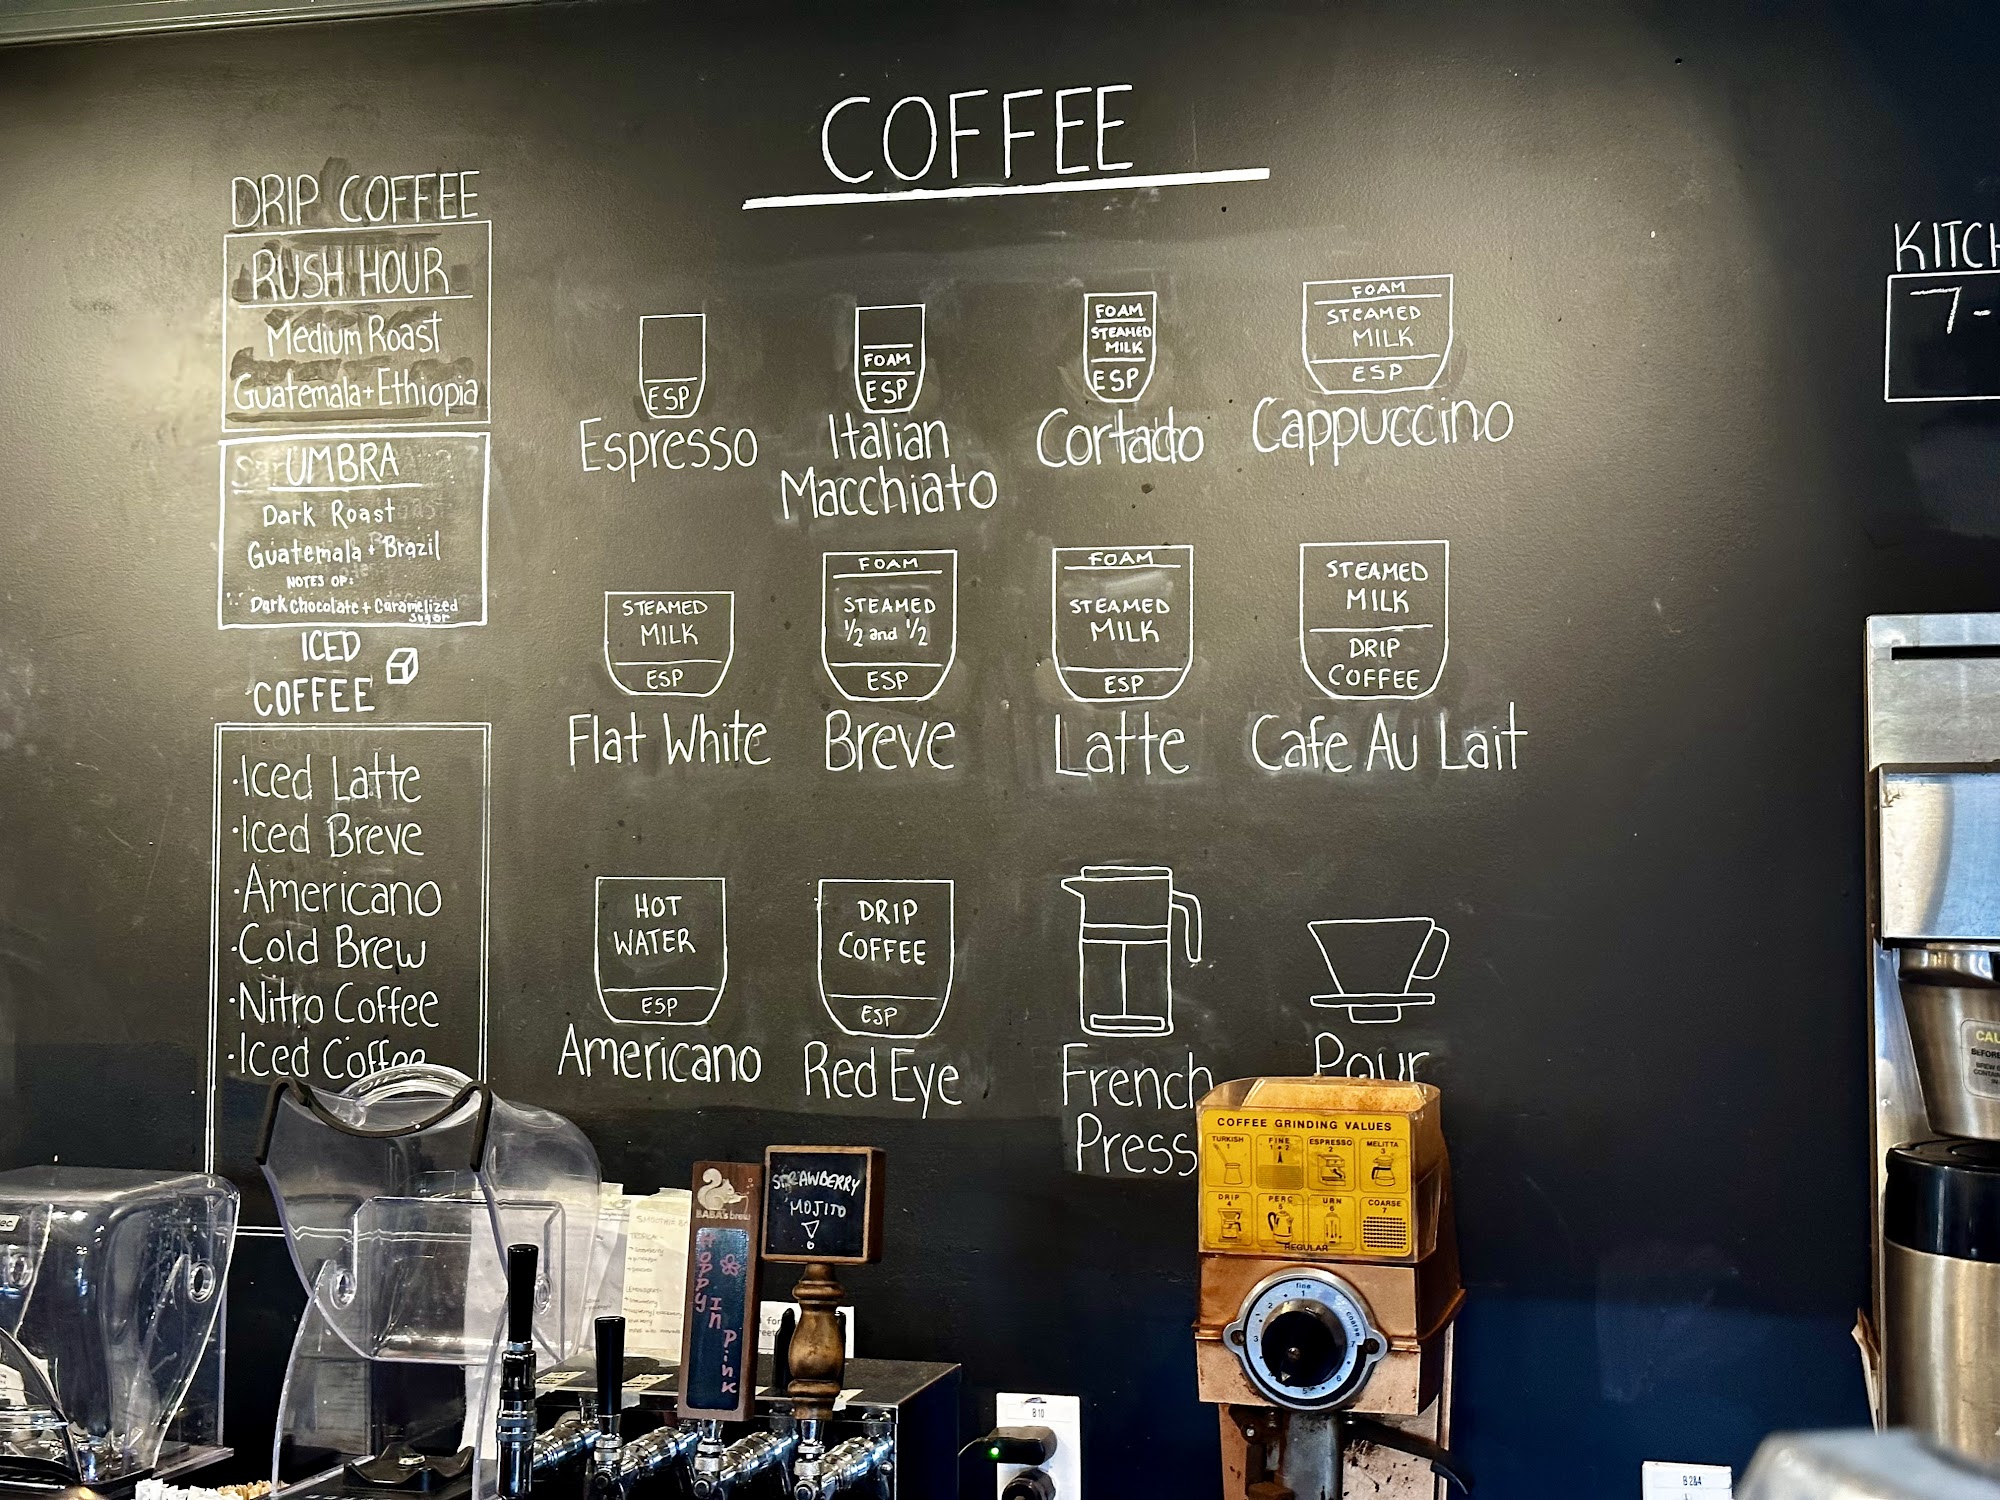 COFFEE
DRIP COFFEE
RUSH HOUR
Medium Roast
Guatemala + Ethiopia
UMBRA
Dark Roast
Guatemala + Brazil
NOTES OF:
Dark Chocolate + Caramelized
Sugar
ICED
COFFEE
·Iced Latte
·Iced Breve
·Americano
·Cold Brew
·Nitro Coffee
·Iced Coffee
ESP
Espresso
FOAM
ESP
Italian
Macchiato
FOAM
STEAMED
MILK
ESP
Cortado
FOAM
STEAMED
MILK
ESP
Cappuccino
STEAMED
MILK
ESP
Flat White
FOAM
STEAMED
1/2 and 1/2
ESP
Breve
FOAM
STEAMED
MILK
ESP
Latte
STEAMED
MILK
DRIP
COFFEE
Cafe Au Lait
HOT
WATER
ESP
Americano
DRIP
COFFEE
ESP
Red Eye
French
Press
Pour
KITCH
7-
COFFEE GRINDING VALUES
TURKISH
1
FINE
1 • 2
ESPRESSO
2
MELITTA
3
DRIP
4
PERC
5
URN
6
COARSE
7
REGULAR
fine
coarse
BABA's brew
Hoppy In Pink
STRAWBERRY
MOJITO
SMOOTHIE BA
B 10
B 2&4
CAU
BEFORE